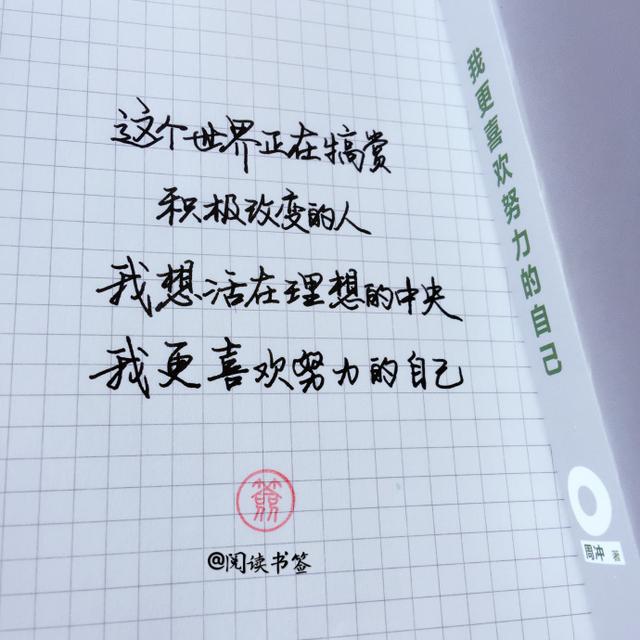 这个世界正在犒赏
积极改变的人
我想活在理想的中央
我更喜欢努力的自己
@阅读书签
我更喜欢努力的自己
周冲 著